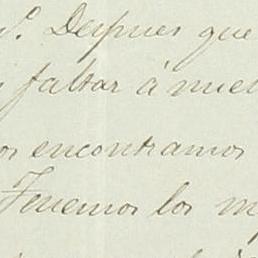 S.^a Despues que
faltar á nues
os encontramos
Tenemos los m